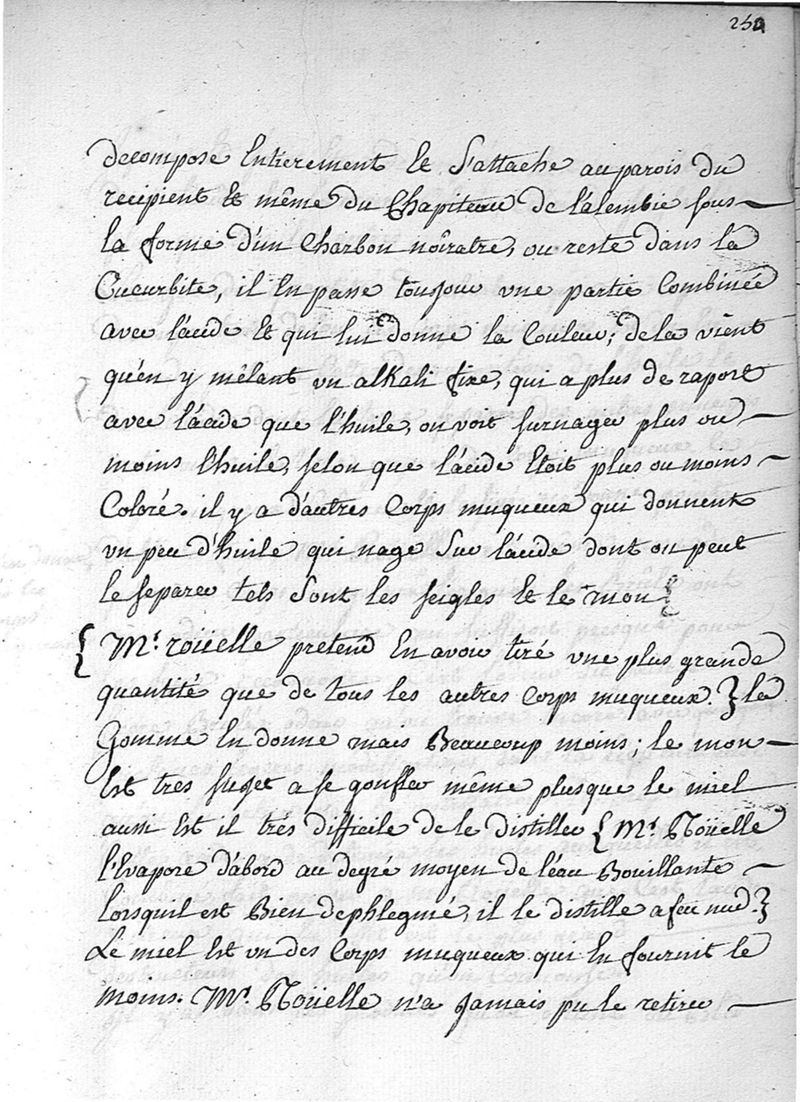 decompose Entierement Et S'attache au parois du
recipient Et même du Chapiteau de l'alembic sous
la forme d'un Charbon noirâtre, ou reste dans la
Cucurbite, il En passe toujour vne partie Combinée
avec l'acide Et qui lui donne la Couleur; de la vient
qu'en y mêlant vn alkali fixe, qui a plus de raport
avec l'acide que l'huile, on voit surnager plus ou
moins l'huile, selon que l'acide Etoit plus ou moins
Coloré. il y a d'autres Corps muqueux qui donnent
vn peu d'huile qui nage Sur l'acide dont on peut
le separer tels Sont les seigles Et le mou
{ Mr. roüelle pretend En avoir tiré vne plus grande
quantité que de tous les autres Corps muqueux. } la
Gomme En donne mais Beaucoup moins; le mou
Est tres sujet a se gonfler même plusque le miel
aussi Est il trés difficile de le distiller { Mr. Roüelle
l'Evapore d'abord au degré moyen de l'eau Bouillante
lorsquil est Bien dephlegmé, il le distille a feu nud. }
Le miel Est vn des Corps muqueux qui En fournit le
moins. Mr. Roüelle n'a Jamais pu le retirer